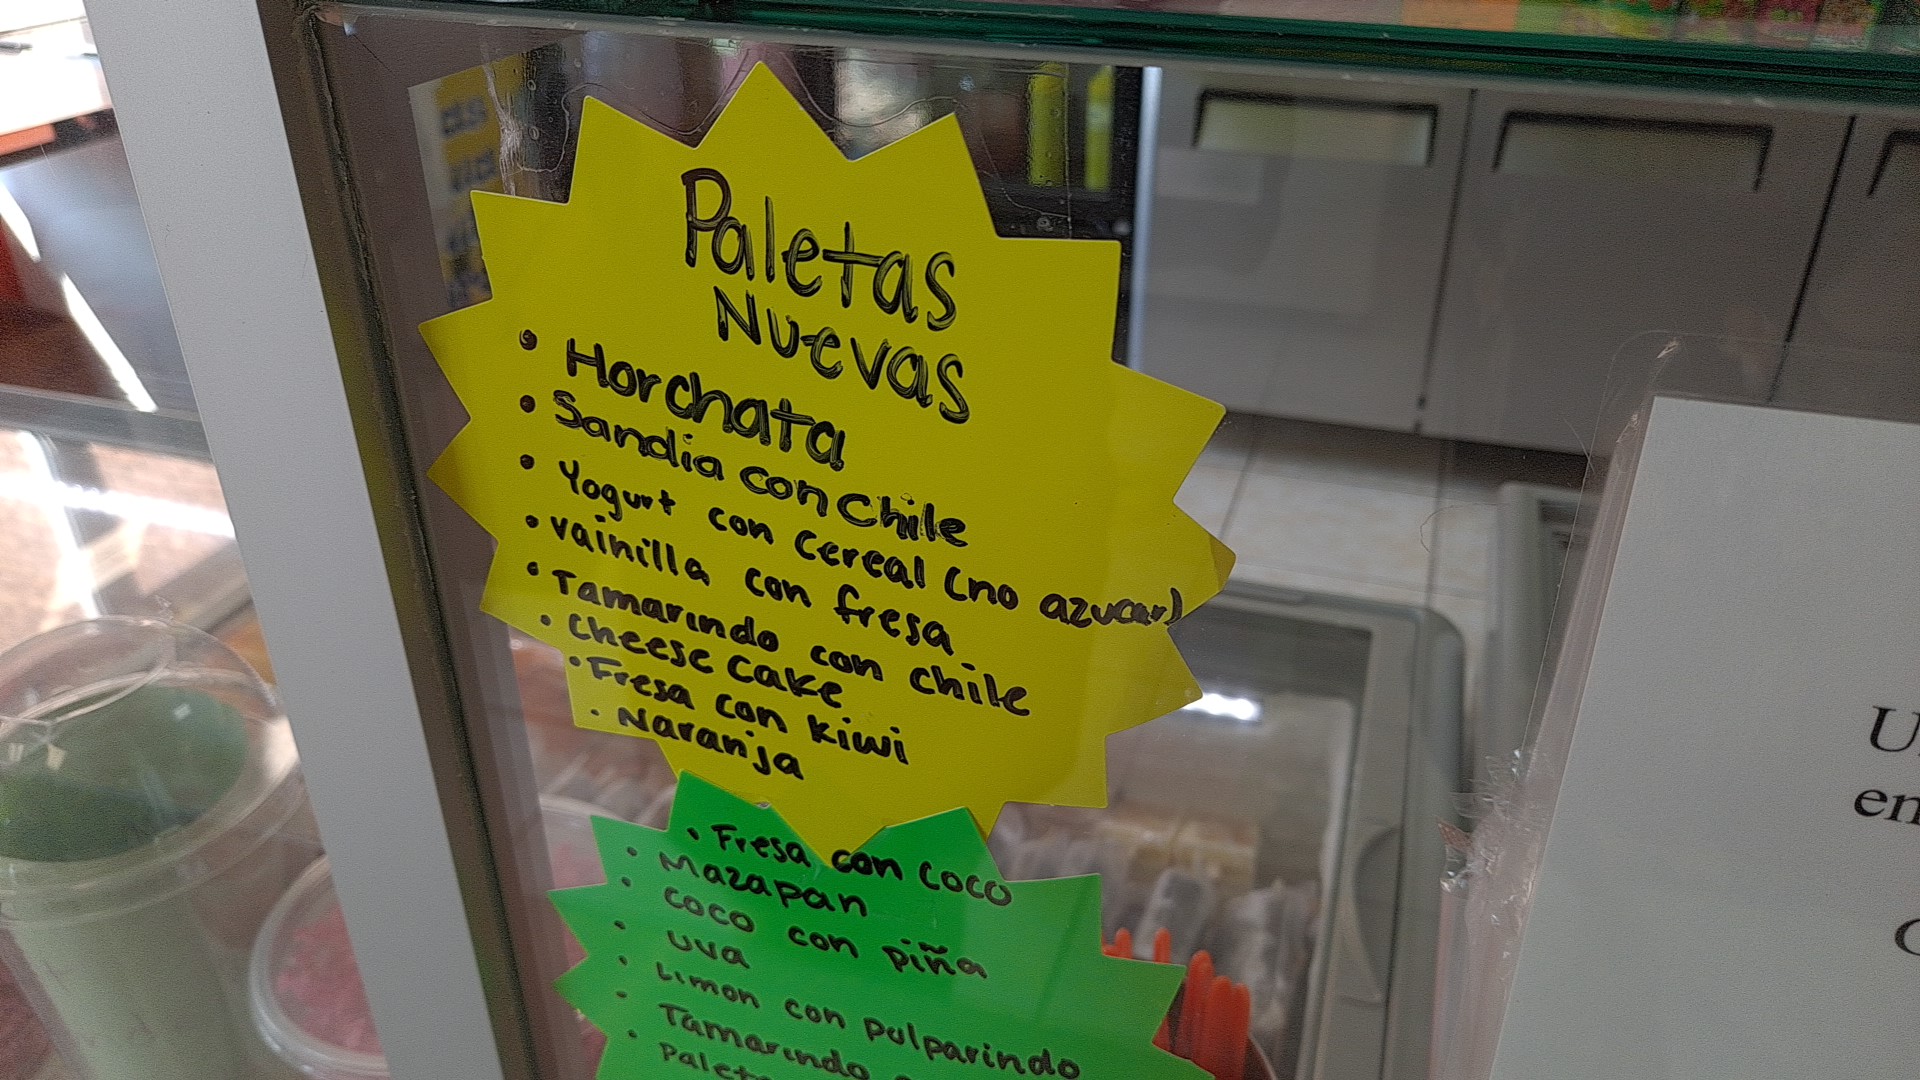 Paletas
Nuevas
• Horchata
• Sandia con chile
• Yogurt con cereal (no azucar)
• vainilla con fresa
• Tamarindo con chile
• Cheese Cake
• Fresa con kiwi
• Naranja
• Fresa con coco
• Mazapan
• coco con piña
• uva
• Limon con pulparindo
• Tamarindo
• Palet
U
en